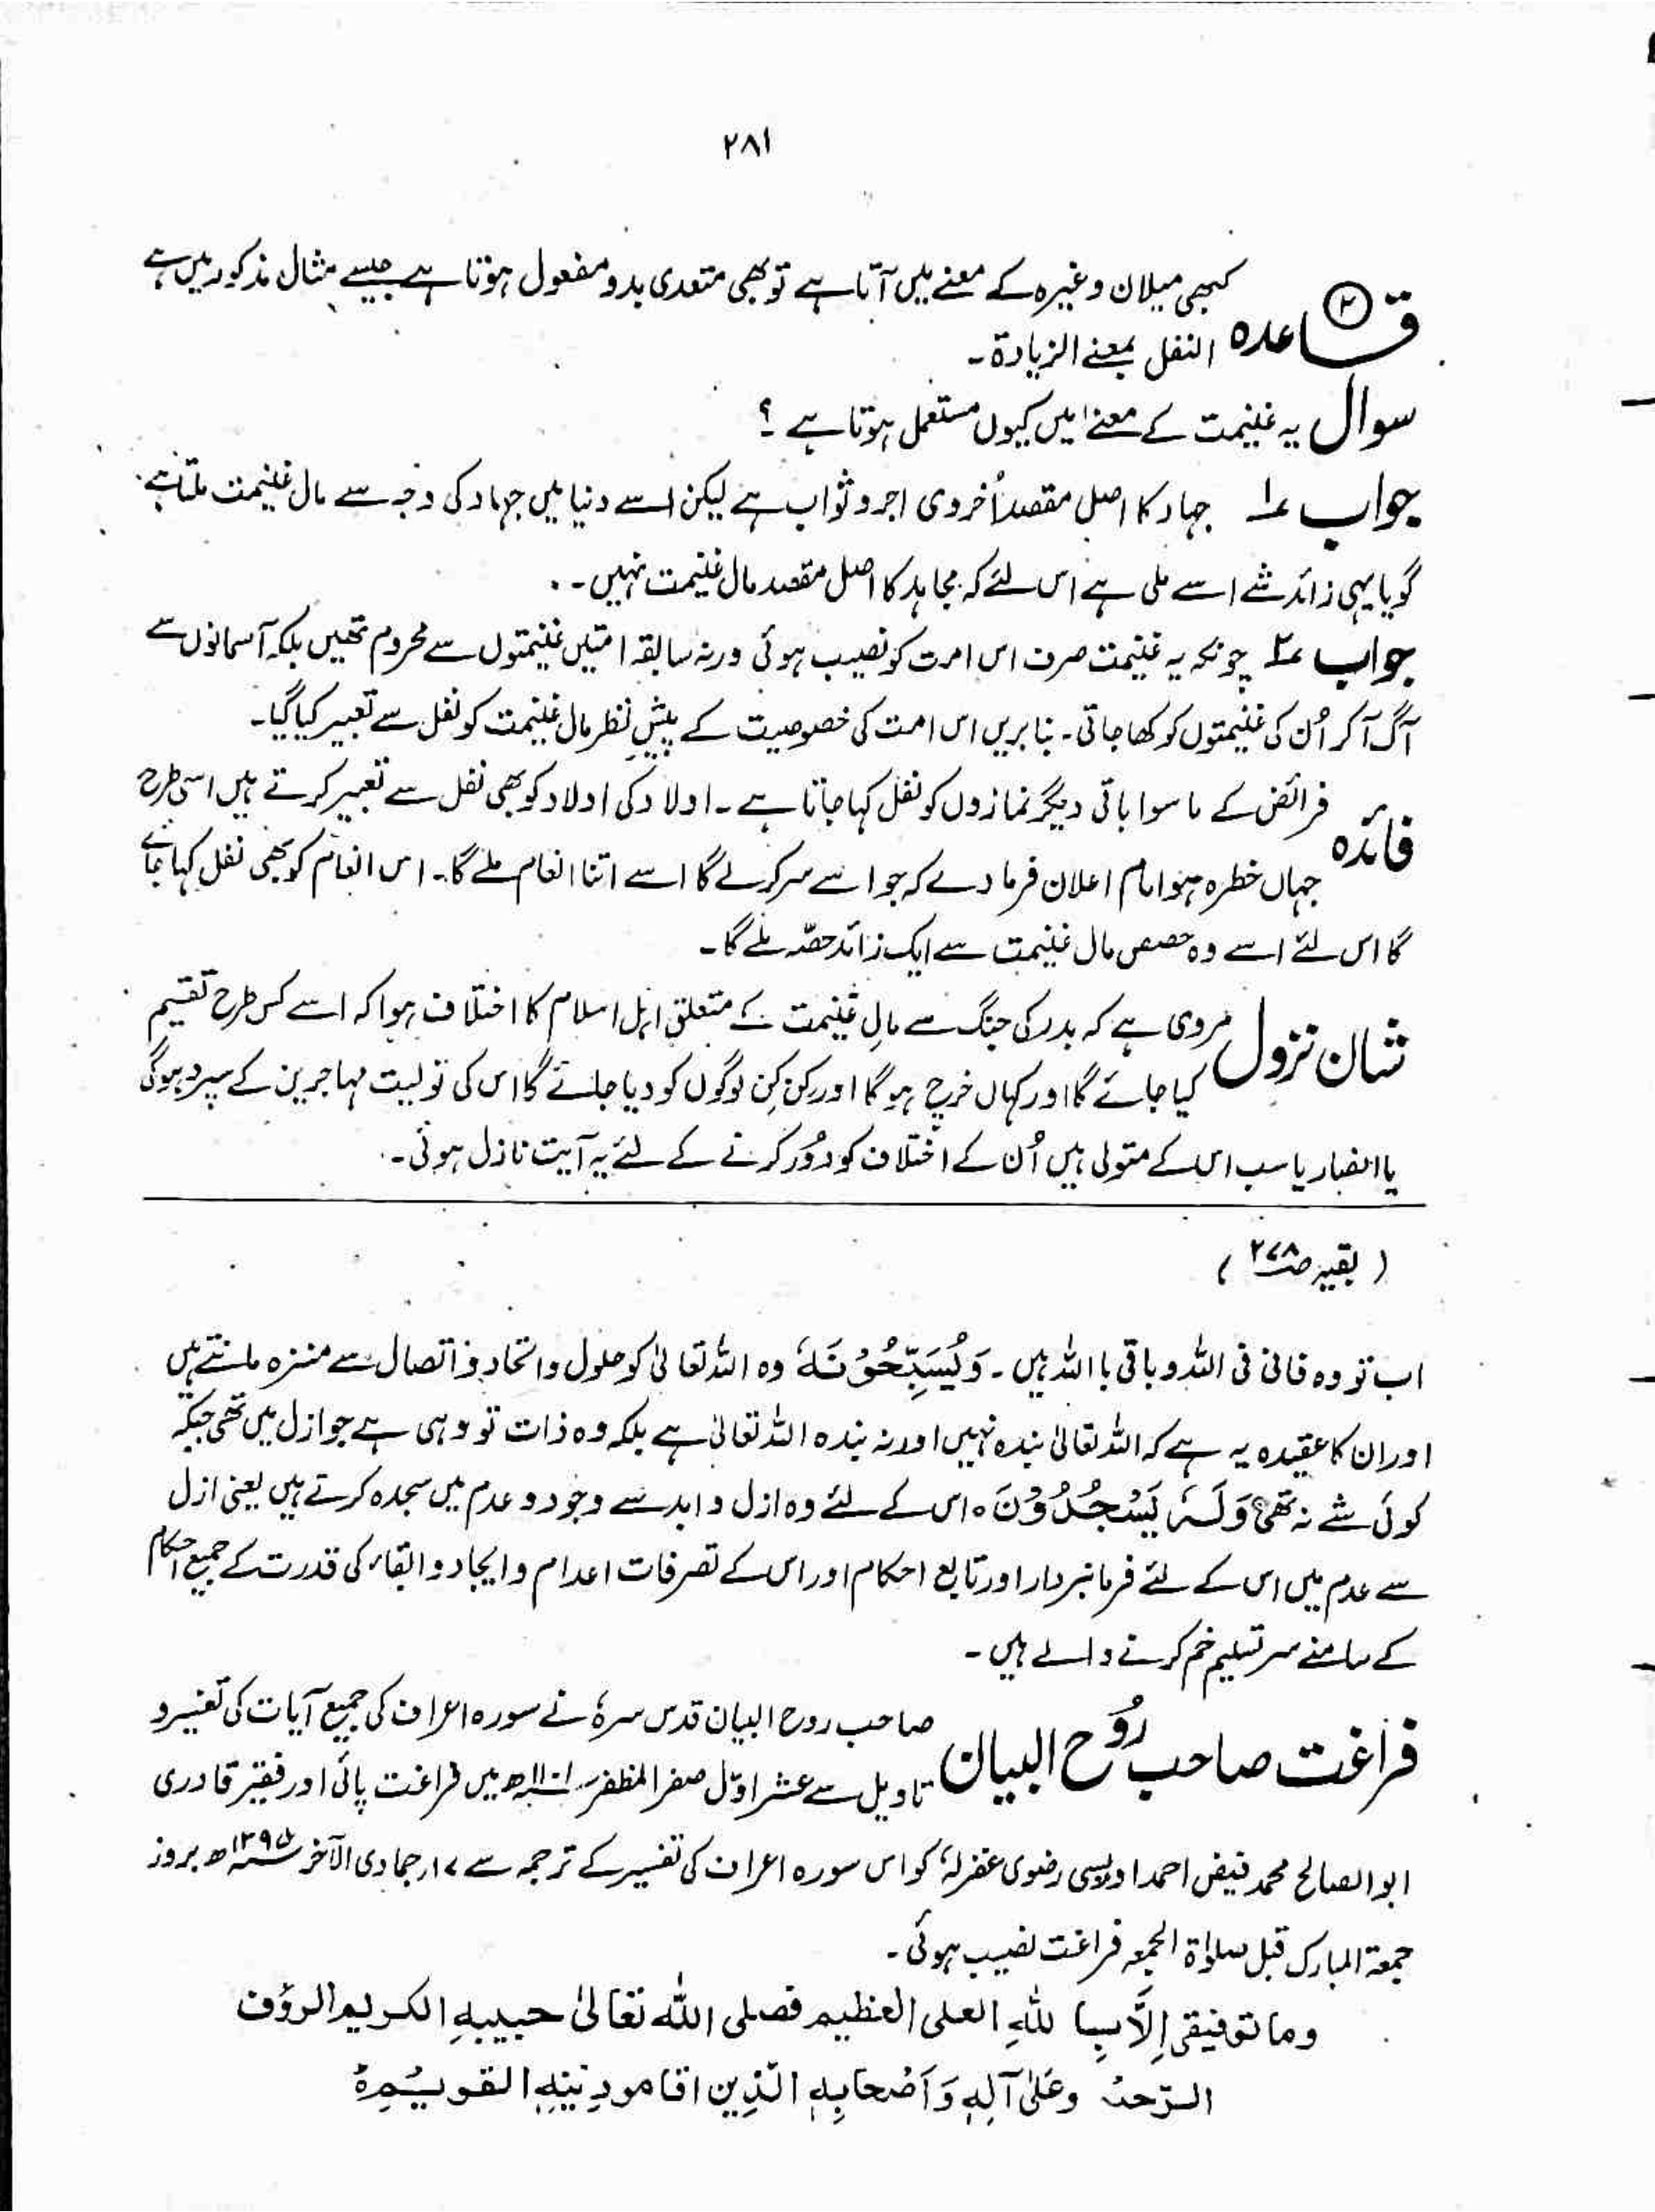 ۲۸۱
کبھی میلان وغیرہ کے معنے میں آتا ہے تو بھی متعدی بدو مفعول ہوتا ہے جیسے مثال مذکور میں ہے
قاعدہ ② النفل بمعنے الزیادۃ ۔
سوال یہ غنیمت کے معنے میں کیوں مستعمل ہوتا ہے ؟
جواب ۱؎ جہاد کا اصل مقصد اُخروی اجر و ثواب ہے لیکن اسے دنیا میں جہاد کی وجہ سے مال غنیمت ملتا ہے
گویا یہی زائد شے اسے ملی ہے اس لئے کہ مجاہد کا اصل مقصد مال غنیمت نہیں ۔
جواب ۲؎ چونکہ یہ غنیمت صرف اس امت کو نصیب ہوئی ورنہ سابقہ امتیں غنیمتوں سے محروم تھیں بلکہ آسمانوں سے
آگ آکر اُن کی غنیمتوں کو کھا جاتی ۔ بنا بریں اس امت کی خصوصیت کے پیشِ نظر مال غنیمت کو نفل سے تعبیر کیا گیا ۔
فائدہ فرائض کے ماسوا باقی دیگر نمازوں کو نفل کہا جاتا ہے ۔ اولاد کی اولاد کو بھی نفل سے تعبیر کرتے ہیں اسی طرح
جہاں خطرہ ہو امام اعلان فرما دے کہ جو اسے سر کرلے گا اسے اتنا انعام ملے گا ۔ اس انعام کو بھی نفل کہا جائے
گا اس لئے اسے وہ حصص مال غنیمت سے ایک زائد حصّہ ملے گا ۔
شان نزول مروی ہے کہ بدر کی جنگ سے مالِ غنیمت کے متعلق اہل اسلام کا اختلاف ہوا کہ اسے کس طرح تقسیم
کیا جائے گا اور کہاں خرچ ہو گا اور کن کِن لوگوں کو دیا جائے گا اس کی تولیت مہاجرین کے سپرد ہوگی
یا انصار یا سب اس کے متولی ہیں اُن کے اختلاف کو دُور کرنے کے لئے یہ آیت نازل ہوئی ۔
( بقیہ صـ۲۷۸ )
اب تو وہ فانی فی اللہ و باقی با اللہ ہیں ۔ وَیُسَبِّحُوْنَہٗ وہ اللہ تعالیٰ کو حلول و اتحاد و اتصال سے منزہ مانتے ہیں
اور ان کا عقیدہ یہ ہے کہ اللہ تعالیٰ بندہ نہیں اور نہ بندہ اللہ تعالیٰ ہے بلکہ وہ ذات تو وہی ہے جو ازل میں تھی جبکہ
کوئی شے نہ تھی وَلَہٗ یَسْجُدُوْنَ ہ اس کے لئے وہ ازل و ابد سے وجود و عدم میں سجدہ کرتے ہیں یعنی ازل
سے عدم میں اس کے لئے فرمانبردار اور تابع احکام اور اس کے تصرفات اعدام و ایجاد و ابقاء کی قدرت کے جمیع احکام
کے سامنے سر تسلیم خم کرنے والے ہیں ۔
فراغت صاحب رُوح البیان صاحب روح البیان قدس سرہٗ نے سورہ اعراف کی جمیع آیات کی تفسیر و
تاویل سے عشر اوّل صفر المظفر ۱۱۰۱ھ میں فراغت پائی اور فقیر قادری
ابو الصالح محمد فیض احمد اویسی رضوی غفرلہٗ کو اس سورہ اعراف کی تفسیر کے ترجمہ سے ۱۷ر جمادی الآخر ھ بروز
جمعۃ المبارک قبل صلوٰۃ الجمعہ فراغت نصیب ہوئی ۔
وما توفیقی اِلَّا بِا للہِ العلی العظیم فصلی اللہ تعالیٰ حبیبہِ الکریم الرؤف
الرّحیم وعَلیٰ آلِہٖ وَاَصْحابِہٖ الّذِین اقامو دِینِہٖ القویْمِہٗ